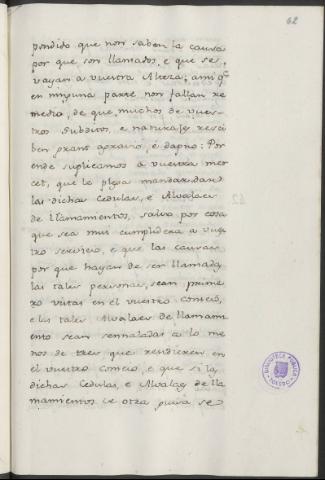 62
pondido que non saben la causa
por que son llamados, e que se
vayan a vuestra Alteza; ami q.e
en ninguna parte non fallan re
medio, de que muchos de vues-
tros subditos, e naturales resci
ben grant agravio, e dapno: Por
ende suplicamos a vuestra mer
cet, que le plega mandar dar
las dichas Cedulas, e Alvalaes
de llamamientos, salvo por cosa
que sea mui cumplidera a vues
tro servicio, e que las causas
por que hayan de ser llamadas
las tales personas, sean prime
ro vistas en el vuestro consejo,
e las tales Alvalaes de llamami
ento sean sennaladas a lo me
nos de tres que residieren en
el vuestro consejo, e que si las
dichas Cedulas, e Alvalaes de lla
mamientos de otra guisa se
BIBLIOTECA PUBLICA
TOLEDO